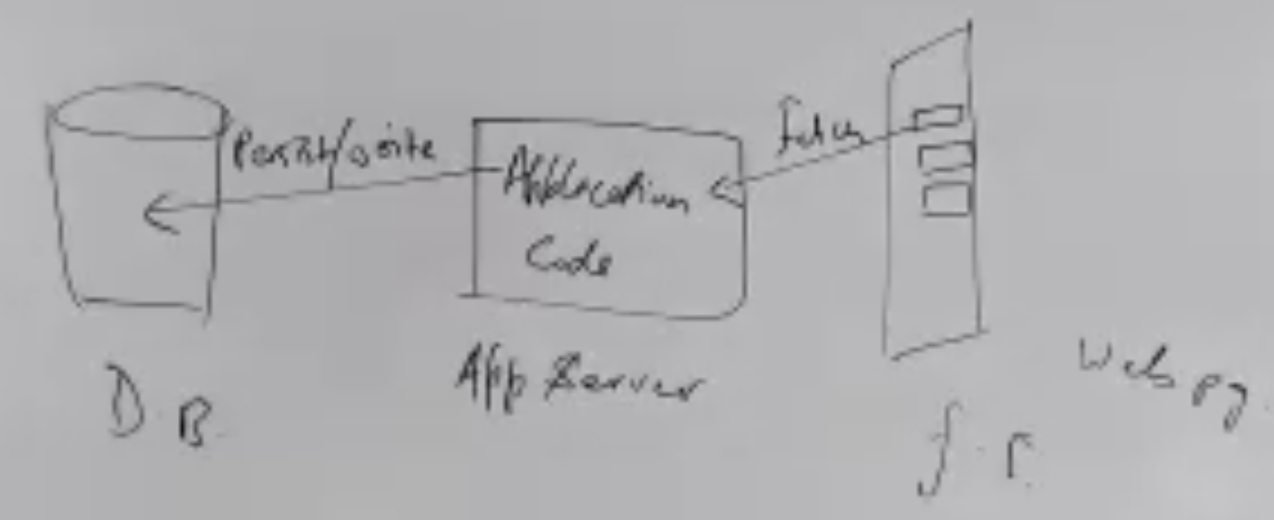 Persist/write
Application
Code
Fetch
D.B.
App Server
Web pg.